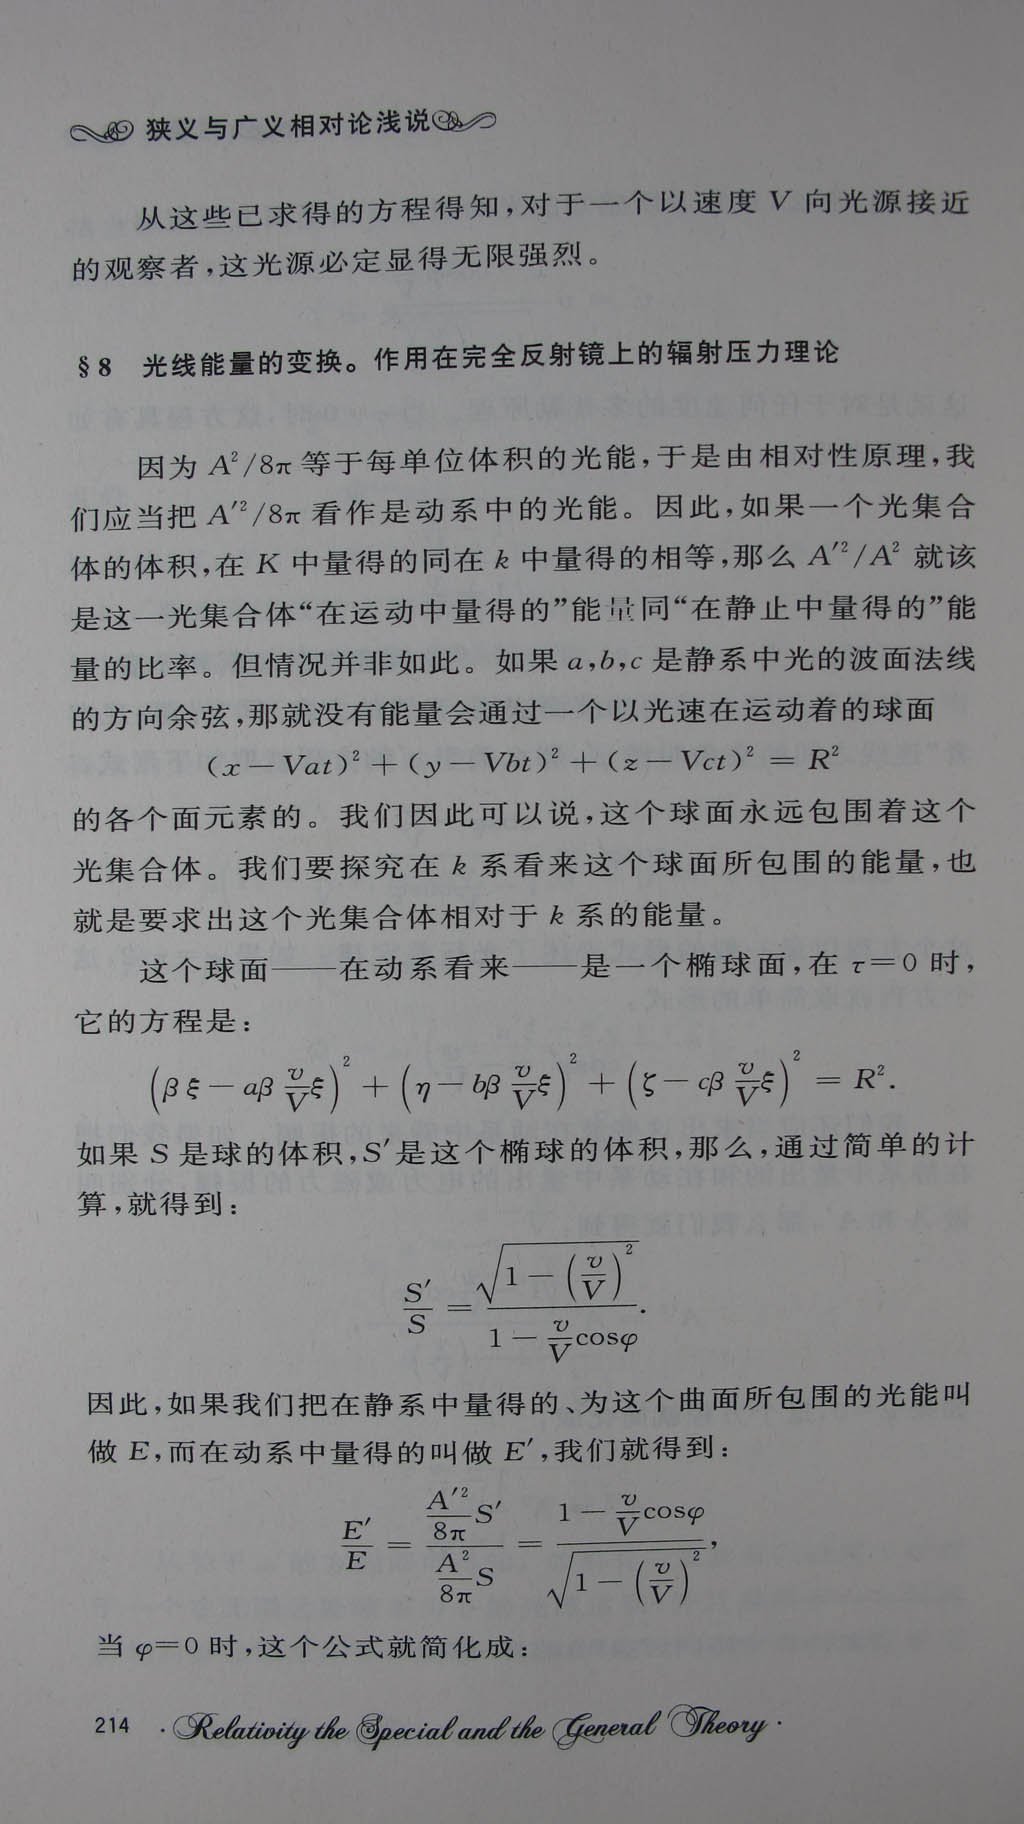 狭义与广义相对论浅说
从这些已求得的方程得知,对于一个以速度 V 向光源接近
的观察者,这光源必定显得无限强烈。
§8 光线能量的变换。作用在完全反射镜上的辐射压力理论
因为 A²/8π 等于每单位体积的光能,于是由相对性原理,我
们应当把 A′²/8π 看作是动系中的光能。因此,如果一个光集合
体的体积,在 K 中量得的同在 k 中量得的相等,那么 A′²/A² 就该
是这一光集合体“在运动中量得的”能量同“在静止中量得的”能
量的比率。但情况并非如此。如果 a,b,c 是静系中光的波面法线
的方向余弦,那就没有能量会通过一个以光速在运动着的球面
(x－Vat)²＋(y－Vbt)²＋(z－Vct)²＝R²
的各个面元素的。我们因此可以说,这个球面永远包围着这个
光集合体。我们要探究在 k 系看来这个球面所包围的能量,也
就是要求出这个光集合体相对于 k 系的能量。
这个球面——在动系看来——是一个椭球面,在 τ＝0 时,
它的方程是:
(βξ－aβ v/V ξ)²＋(η－bβ v/V ξ)²＋(ζ－cβ v/V ξ)²＝R².
如果 S 是球的体积,S′是这个椭球的体积,那么,通过简单的计
算,就得到:
S′/S＝√(1－(v/V)²)/(1－v/V cosφ).
因此,如果我们把在静系中量得的、为这个曲面所包围的光能叫
做 E,而在动系中量得的叫做 E′,我们就得到:
E′/E＝(A′²/8π S′)/(A²/8π S)＝(1－v/V cosφ)/√(1－(v/V)²),
当 φ＝0 时,这个公式就简化成:
214 · Relativity the Special and the General Theory ·